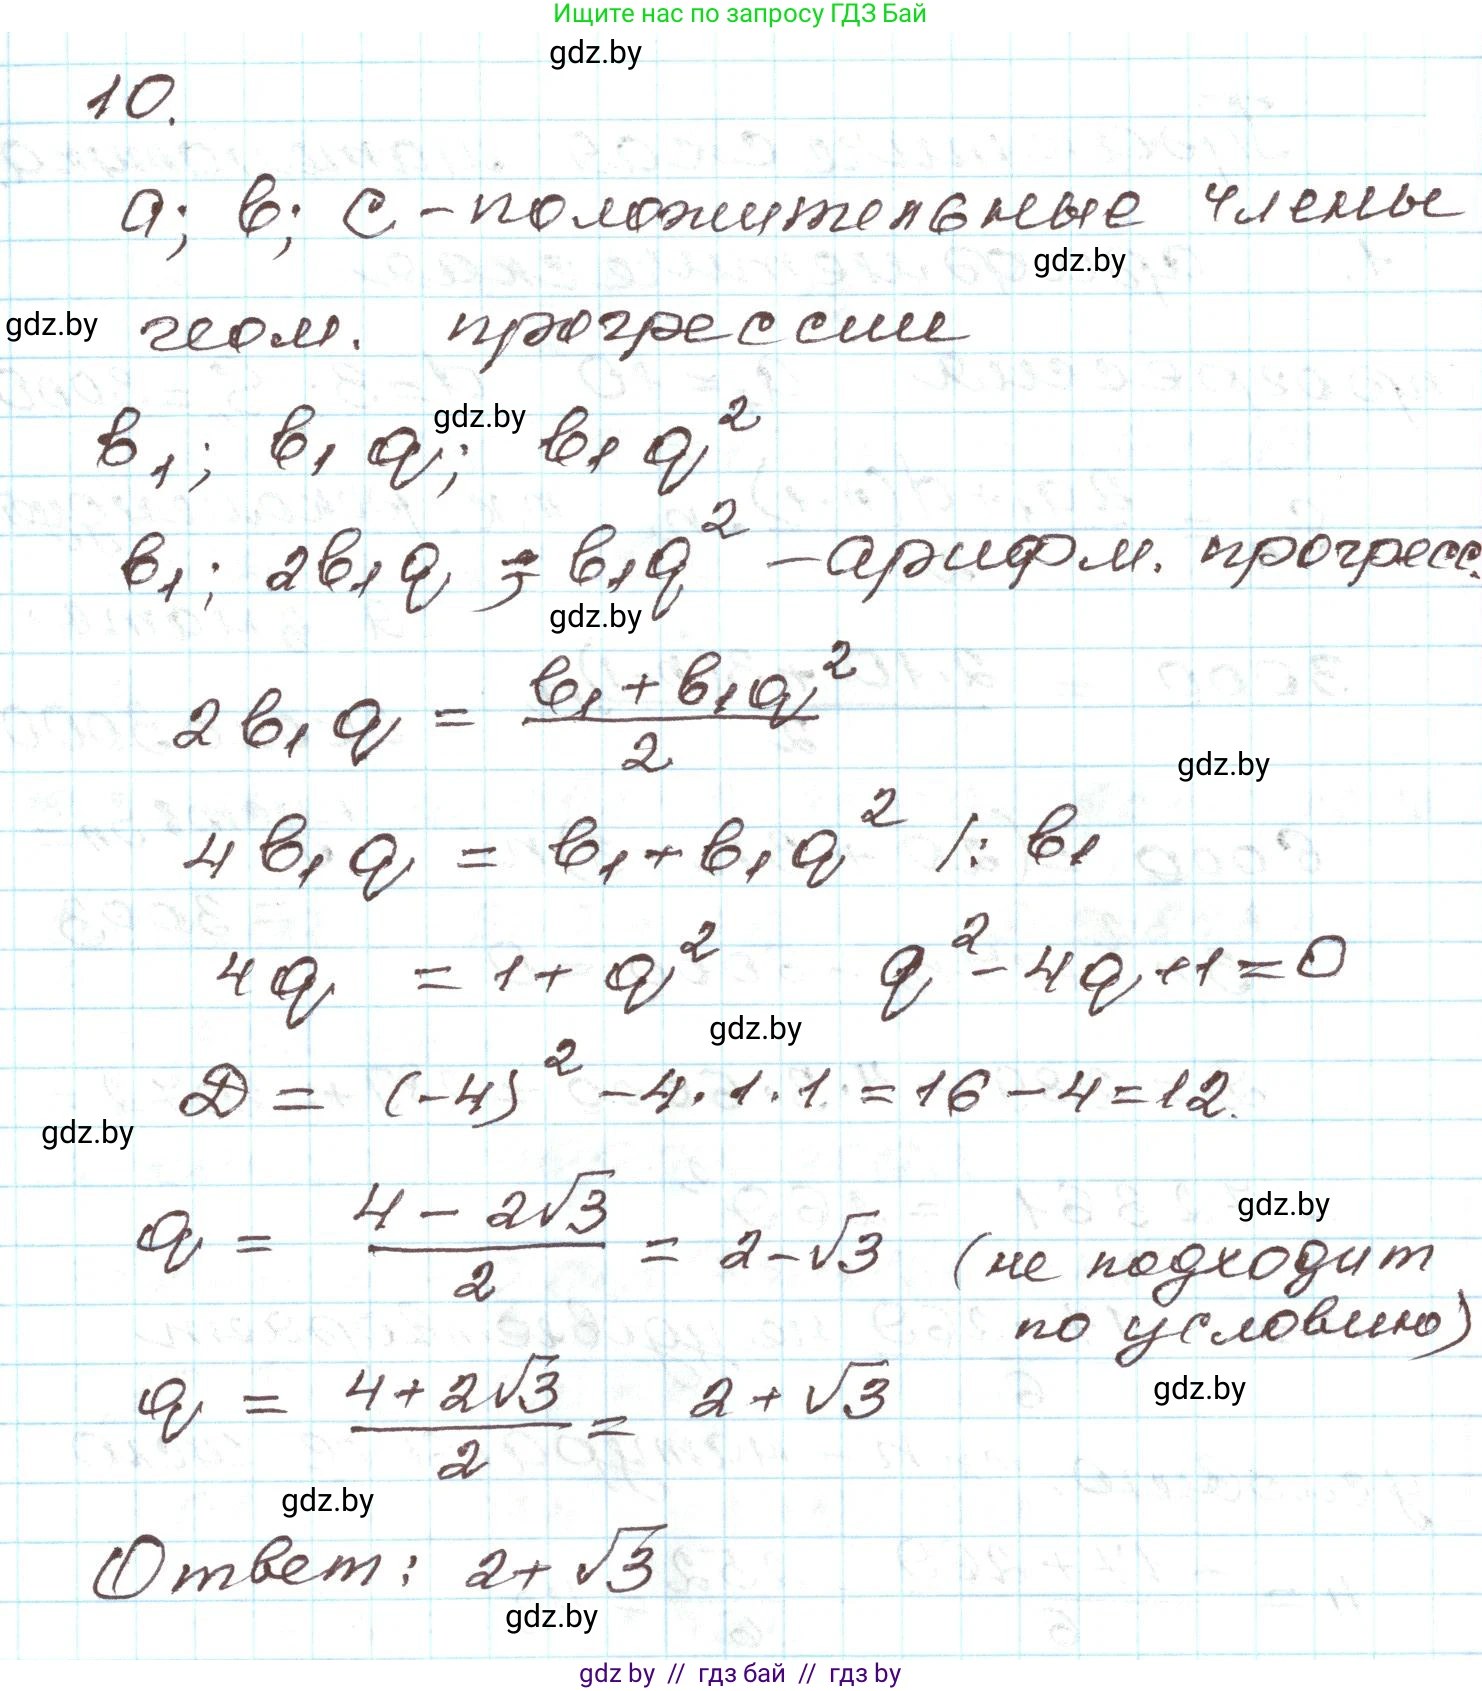 Ищите нас по запросу ГДЗ Бай
gdz.by
10.
a; в; с - положительные члены
gdz.by
gdz.by
геом. прогрессии
gdz.by
в₁; в₁q; в₁q²
в₁; 2в₁q; в₁q² - арифм. прогресс.
gdz.by
2в₁q = (в₁ + в₁q²)/2
gdz.by
4в₁q = в₁ + в₁q² /: в₁
4q = 1 + q² q² - 4q + 1 = 0
gdz.by
D = (-4)² - 4 · 1 · 1 = 16 - 4 = 12.
gdz.by
gdz.by
q = (4 - 2√3)/2 = 2 - √3 (не подходит
по условию)
gdz.by
q = (4 + 2√3)/2 = 2 + √3
gdz.by
Ответ: 2 + √3
gdz.by
gdz by // гдз бай // гдз by